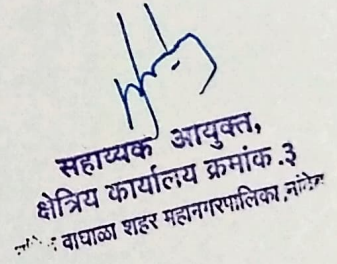 सहाय्यक आयुक्त,
क्षेत्रिय कार्यालय क्रमांक .३
वाघाळा शहर महानगरपालिका ,नांदेड